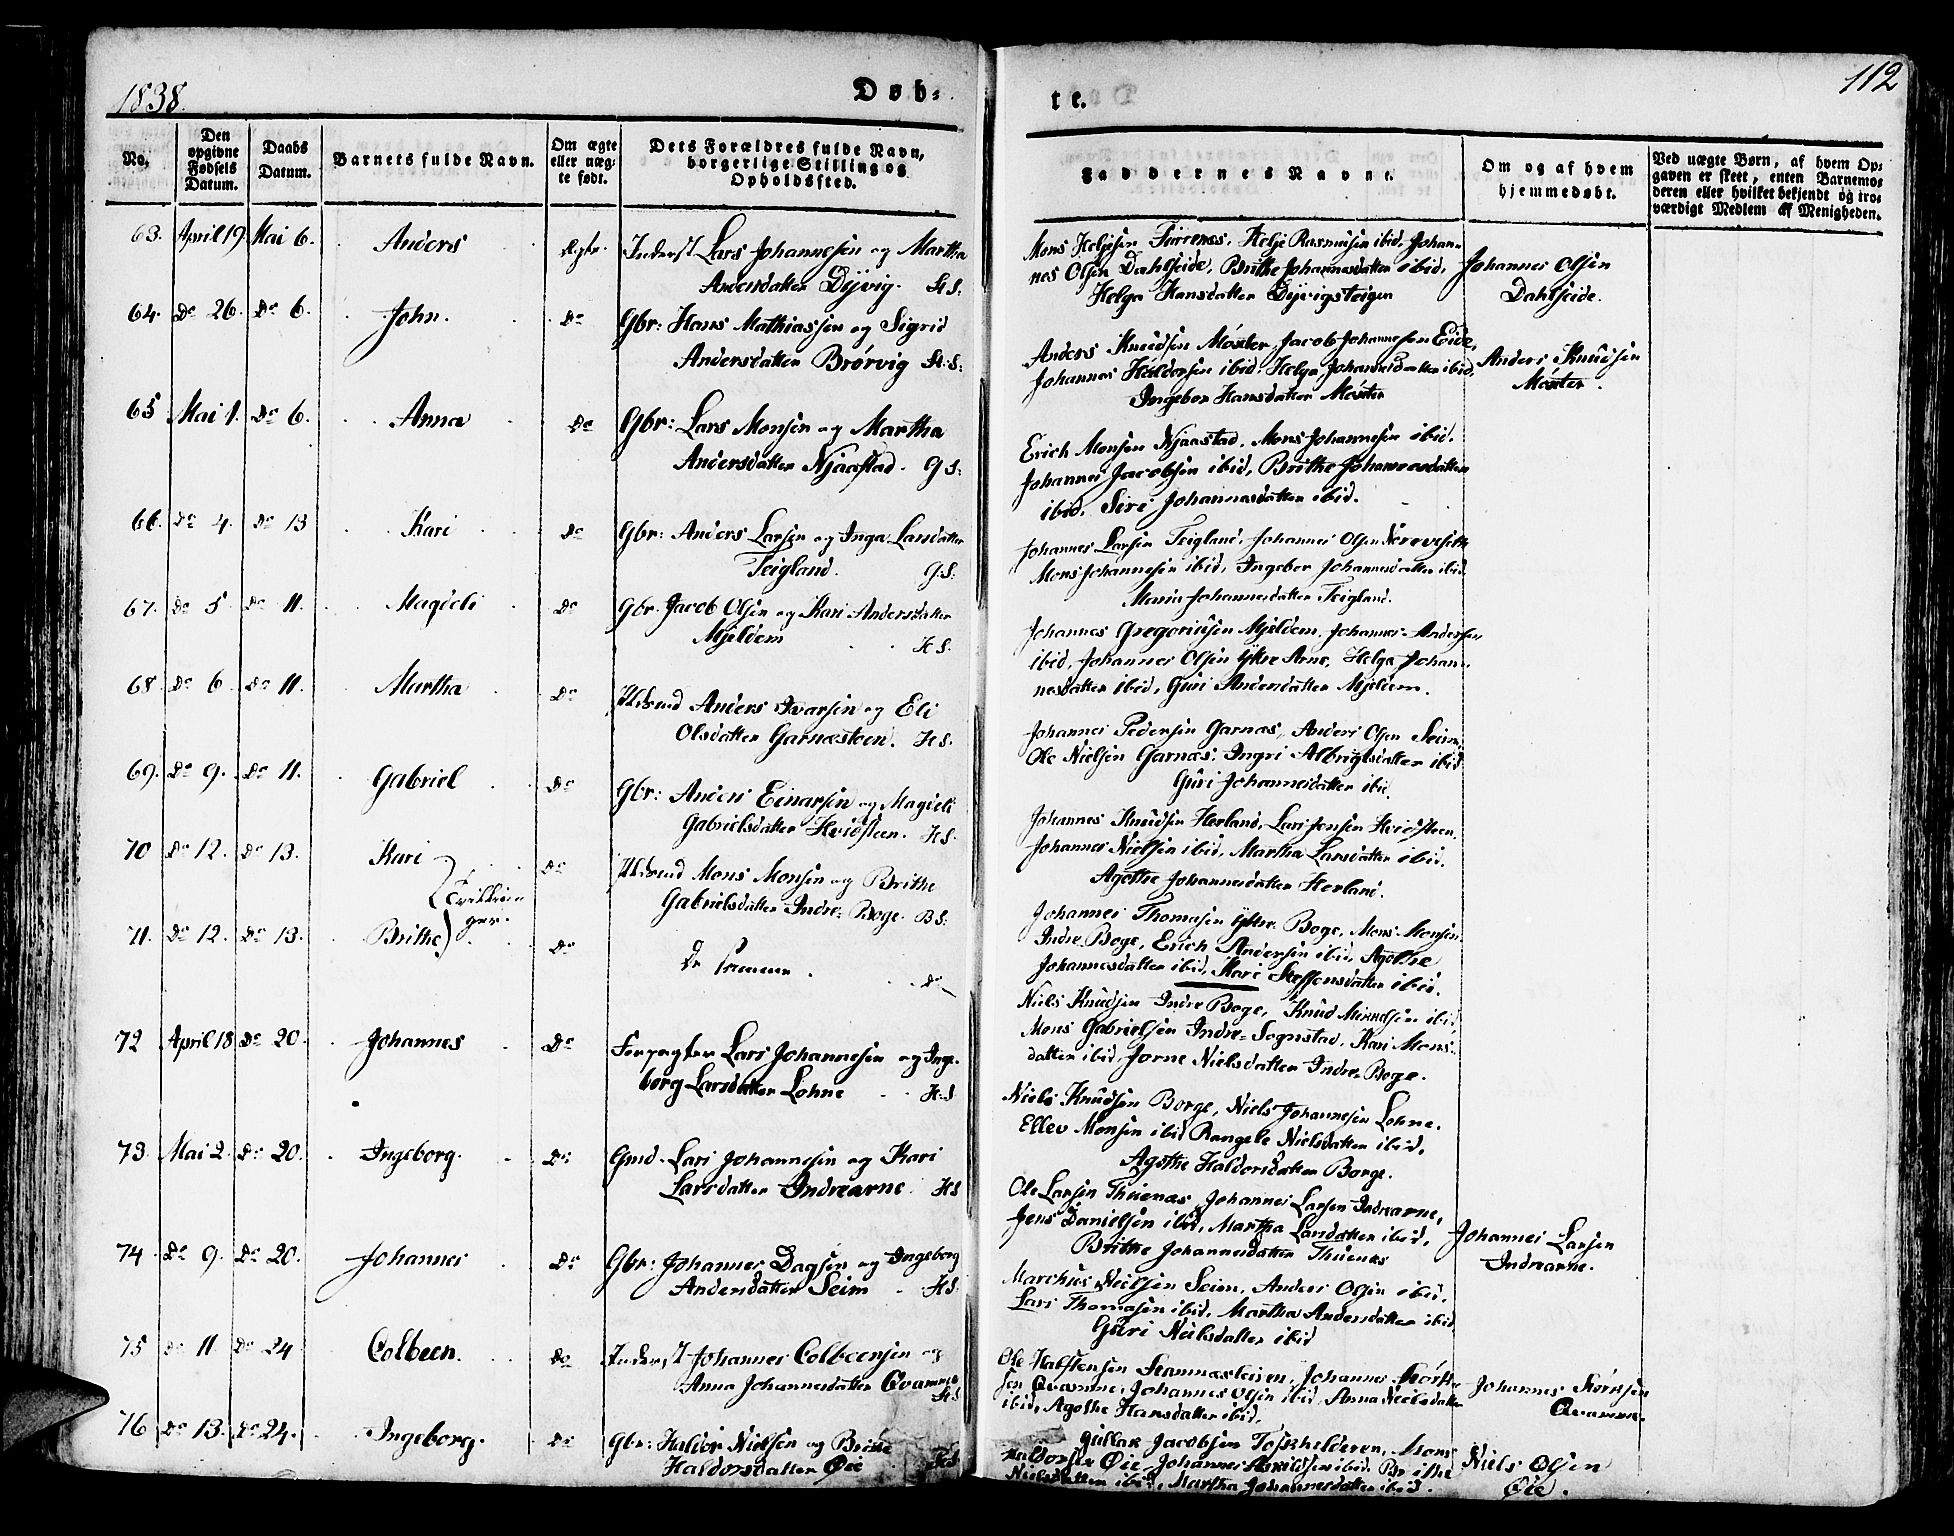 1838.
Døb-
te.
112
No.
Den opgivne Fødsels Datum.
Daabs Datum.
Barnets fulde Navn.
Om ægte eller uægte født.
Dets Forældres fulde Navn, borgerlige Stilling og Opholdssted.
Faddernes Navne.
Om og af hvem hjemmedøbt.
Ved uægte Børn, af hvem Opgaven er skeet, enten Barnemoderen eller hvilket bekjendt og troværdigt Medlem af Menigheden.
63. April 19. Mai 6. Anders Ægte. Inderst Lars Johannesen og Martha
Andersdatter Dyvig. H S:
Mons Helgesen Helje Rasmusen ibid, Johan-
nes Olsen Dahlseide, Brithe Johannesdatter ibid,
Helga Hansdatter Dyvigsteigen
Johannes Olsen
Dahlseide.
64. Do 26. Do 6. John. Do Gbr: Hans Mathiassen og Sigrid
Andersdatter Brørvig H:S:
Anders Knudsen Møster, Jacob Johannesen Eide,
Johannes Haldorsen ibid, Helga Johannesdatter ibid,
Ingebor Hansdatter Møster
Anders Knudsen
Møster.
65 Mai 1. Do 6. Anna Do Gbr: Lars Monsen og Martha
Andersdatter Njaastad. G S:
Erich Monsen Njaastad, Mons Johannesen ibid.
Johannes Jacobsen ibid, Brithe Johannesdatter
ibid, Siri Johannesdatter ibid.
66. Do 4. Do 13 Kari Do Gbr: Anders Larsen og Inga Larsdatter
Teigland. G.S:
Johannes Larsen Teigland, Johannes Olsen
Mons Johannesen ibid, Ingebor Johannesdatter ibid
Maria Johannesdatter Teigland.
67. Do 5. Do 11. Magdeli Do Gbr. Jacob Olsen og Kari Andersdatter
Mjeldem H S.
Johannes Gregoriusen Mjeldem, Johannes Andersen
ibid, Johannes Olsen Ytre Arne, Helga Johan-
nesdatter ibid, Guri Andersdatter Mjeldem.
68 Do 6. Do 11. Martha Do Anders Ivarsen og Eli
Olsdatter Garnæsteen. H S.
Johannes Pedersen Garnæs, Anders Olsen Seim,
Ole Nielsen Garnæs, Ingri Albrigtsdatter ibid
Guri Johannesdatter ibid.
69. Do 9. Do 11. Gabriel Do Gbr: Anders Einarsen og Magdeli
Gabrielsdatter Hvidsteen. H S.
Johannes Knudsen Herland, Lars Jensen Hvidsteen.
Johannes Nielsen ibid, Martha Larsdatter ibid.
Agothe Johannesdatter Herland.
70 Do 12. Do 13. Kari Do Mons Monsen og Brithe
Gabrielsdatter Indre Boge. B S.
Tvillin-
ger.
Johannes Thomasen Ytre Boge, Mons Monsen
Indre Boge, Erich Andersen ibid, Agothe
Johannesdatter ibid, Kari Steffensdatter ibid.
71. Do 12. Do 13. Brithe Do De samme. Do
Niels Knudsen Indre Boge, Knud Monsen ibid
Mons Gabrielsen Indre Sognstad, Kari Mons-
datter ibid, Jorne Nielsdatter Indre Boge.
72 April 18 Do 20. Johannes Do Forpagter Lars Johannesen og Inge-
borg Larsdatter Lohne H.S
Niels Knudsen Borge, Niels Johannesen Lohne.
Ellev Monsen ibid Rangele Nielsdatter ibid,
Agothe Haldorsdatter Borge.
73. Mai 2. Do 20. Ingeborg. Do Gmd. Lars Johannesen og Kari
Larsdatter Indrearne. H S
Ole Larsen Thuenæs, Johannes Larsen Indrearne,
Jens Danielsen ibid, Martha Larsdatter ibid,
Brithe Johannesdatter Thuenæs
Johannes Larsen
Indrearne.
74 Do 9. Do 20. Johannes Do Gbr: Johannes Dagsen og Ingeborg
Andersdatter Seim H S
Marchus Nielsen Seim, Anders Olsen ibid,
Lars Thomasen ibid, Martha Andersdatter ibid
Guri Nielsdatter ibid
75 Do 11 Do 24 Colbeen. Do Inderst Johannes Colbeensen og
Anna Johannesdatter Qvamme H S
Ole Halstensen Johannes Størk-
sen Qvamme, Johannes Olsen ibid, Anna Nielsdatter
ibid, Agothe Hansdatter ibid.
Johannes Størksen
Qvamme.
76 Do 13. Do 24. Ingeborg. Do Gbr: Haldor Nielsen og Brithe
Haldorsdatter Øie H S
Gullak Jacobsen Toskhelderen, Mons
Haldorsen Øie, Johannes ibid, Brithe
Nielsdatter ibid, Martha Johannesdatter ibid.
Niels Olsen
Øie.